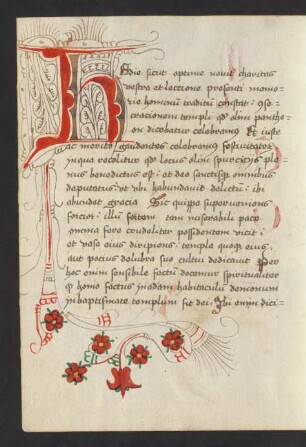 Hodie sicut optime novit charitas
vestra et leccione presenti memo-
rie hominu traditu constat: 9se-
cracionem templi qd olim panthe-
on dicebatur celebramus Et iuste
merito gaudentes celebramus festivitatem
in qua recolitur qd locus olim spurcicijs ple-
nus benedictus est: et deo sanctisqz omnibus
deputatus: et ubi habundavit delictu: ibi
abundet gracia Sic quippe superveniens
forcior: illu fortem tam
omnia fere possidentem vicit:
et vasa eius diripiens: templa queqz eius
aut pocius delubra suo cultui dedicavit Per
hoc enim sensibile factu docemur spiritualiter
qd homo factus habitaculu demonum
in baptismate templum fit dei: Ibi enim dici-